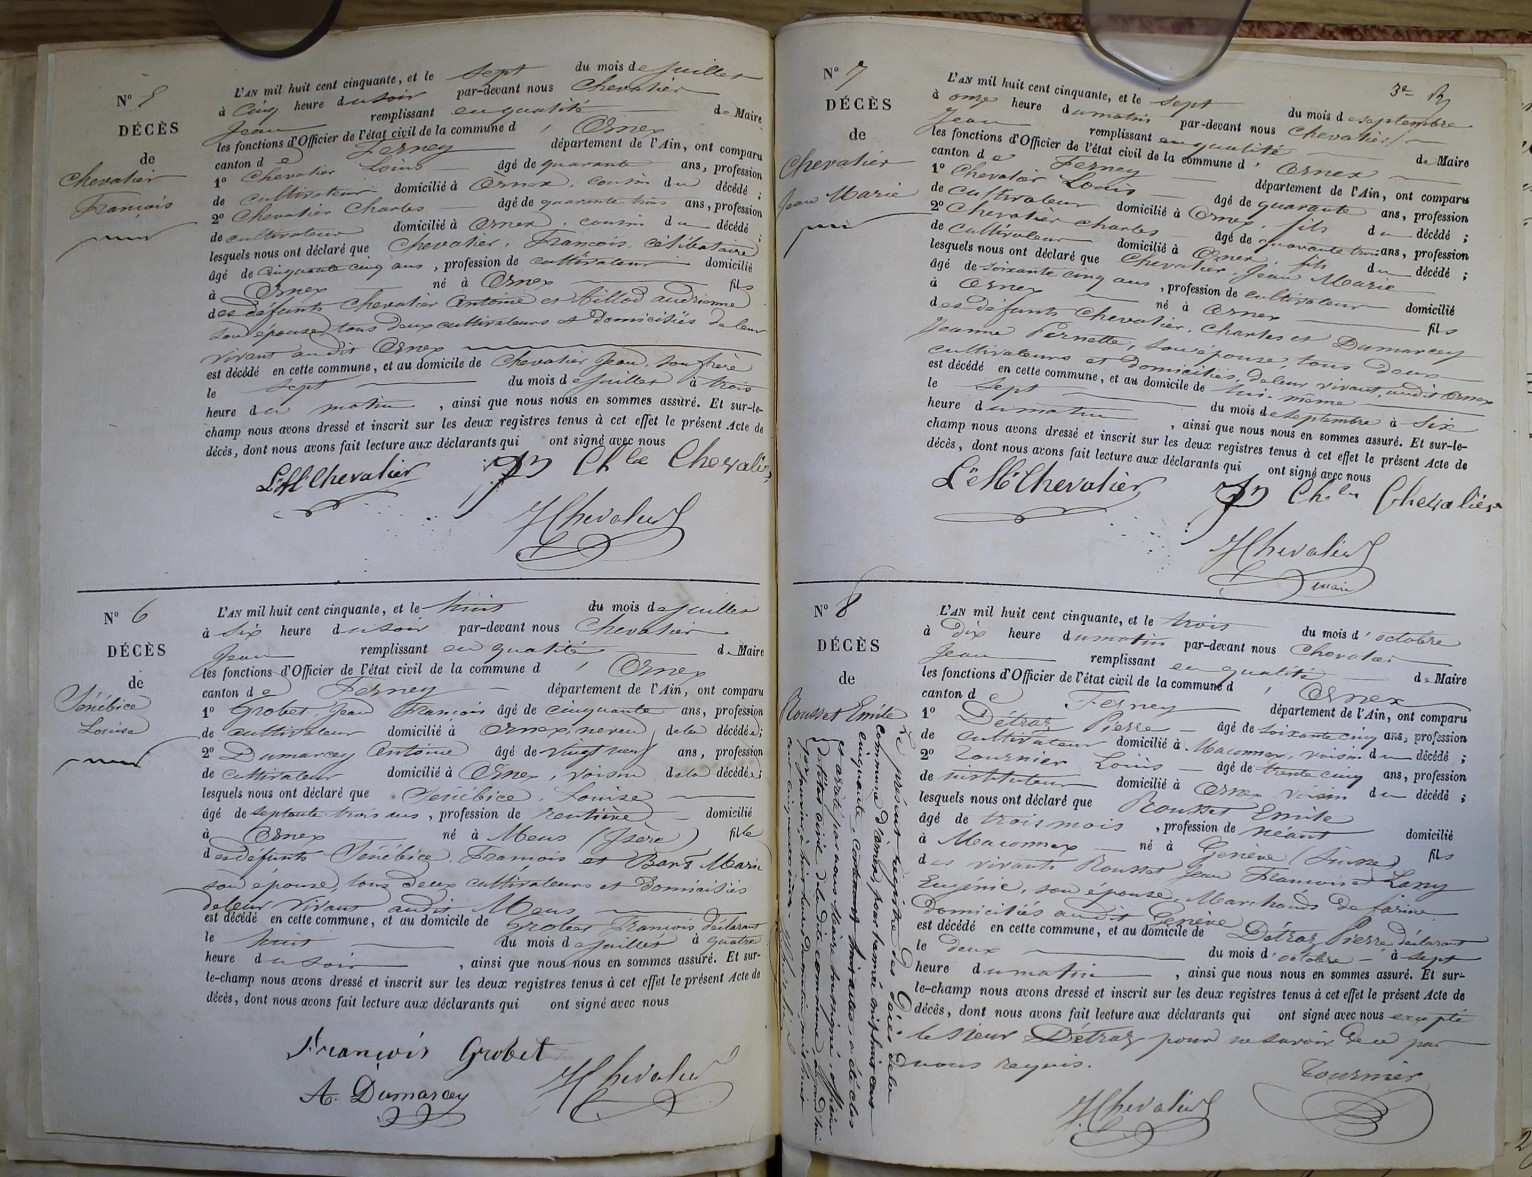 N° 5
DÉCÈS
de
Chevalier
François
L'AN mil huit cent cinquante, et le sept du mois de juillet
à cinq heure du soir par-devant nous Chevalier
Jean remplissant en qualité de Maire
les fonctions d'Officier de l'état civil de la commune d' Ornex
canton de Ferney département de l'Ain, ont comparu
1° Chevalier Louis âgé de quarante ans, profession
de cultivateur domicilié à Ornex, cousin du décédé ;
2° Chevalier Charles âgé de quarante trois ans, profession
de cultivateur domicilié à Ornex, cousin du décédé ;
lesquels nous ont déclaré que Chevalier, François, célibataire
âgé de cinquante cinq ans, profession de cultivateur domicilié
à Ornex né à Ornex fils
des défunts Chevalier Antoine et Billod andrienne
son épouse, tous deux cultivateurs et Domiciliés de leur
vivant audit Ornex
est décédé en cette commune, et au domicile de Chevalier Jean, son frère
le sept du mois de juillet à trois
heure du matin, ainsi que nous nous en sommes assuré. Et sur-le-
champ nous avons dressé et inscrit sur les deux registres tenus à cet effet le présent Acte de
décès, dont nous avons fait lecture aux déclarants qui ont signé avec nous
Chevalier Chevalier
JChevalier
N° 6
DÉCÈS
de
Sénébice
Louise
L'AN mil huit cent cinquante, et le huit du mois de juillet
à six heure du soir par-devant nous Chevalier
Jean remplissant en qualité de Maire
les fonctions d'Officier de l'état civil de la commune d' Ornex
canton de Ferney département de l'Ain, ont comparu
1° Grobet Jean François âgé de cinquante ans, profession
de cultivateur domicilié à Ornex, neveu de la décédée ;
2° Dumarcey Antoine âgé de vingt neuf ans, profession
de cultivateur domicilié à Ornex, voisin de la décédée ;
lesquels nous ont déclaré que Sénébice, Louise
âgé de septante trois ans, profession de rentière domicilié
à Ornex né à Mens (Isère) fille
des défunts Sénébice, François et Marie
son épouse, tous deux cultivateurs et Domiciliés
de leur vivant audit Mens
est décédé en cette commune, et au domicile de Grobet François déclarant
le huit du mois de juillet à quatre
heure du soir, ainsi que nous nous en sommes assuré. Et sur-
le-champ nous avons dressé et inscrit sur les deux registres tenus à cet effet le présent Acte de
décès, dont nous avons fait lecture aux déclarants qui ont signé avec nous,
François Grobet
A. Dumarcey JChevalier
3e
N° 7
DÉCÈS
de
Chevalier
Jean Marie
L'AN mil huit cent cinquante, et le sept du mois de septembre
à onze heure du matin par-devant nous Chevalier
Jean remplissant en qualité de Maire
les fonctions d'Officier de l'état civil de la commune d' Ornex
canton de Ferney département de l'Ain, ont comparu
1° Chevalier Louis âgé de quarante ans, profession
de cultivateur domicilié à Ornex, fils du décédé ;
2° Chevalier Charles âgé de quarante trois ans, profession
de cultivateur domicilié à Ornex, fils du décédé ;
lesquels nous ont déclaré que Chevalier, Jean Marie
âgé de soixante cinq ans, profession de cultivateur domicilié
à Ornex né à Ornex fils
des défunts Chevalier, Charles et Dumarcey
Jeanne Pernette, son épouse, tous deux
cultivateurs et domiciliés, de leur vivant, audit Ornex
est décédé en cette commune, et au domicile de lui-même
le sept du mois de septembre à six
heure du matin, ainsi que nous nous en sommes assuré. Et sur-le-
champ nous avons dressé et inscrit sur les deux registres tenus à cet effet le présent Acte de
décès, dont nous avons fait lecture aux déclarants qui ont signé avec nous
Chevalier Chevalier
JChevalier
maire
N° 8
DÉCÈS
de
Rousset Emile
L'AN mil huit cent cinquante, et le trois du mois d'octobre
à dix heure du matin par-devant nous Chevalier
Jean remplissant en qualité de Maire
les fonctions d'Officier de l'état civil de la commune d' Ornex
canton de Ferney département de l'Ain, ont comparu
1° Détraz Pierre âgé de soixante cinq ans, profession
de cultivateur domicilié à Maconnex, voisin du décédé ;
2° Tournier Louis âgé de trente cinq ans, profession
de instituteur domicilié à Ornex voisin du décédé ;
lesquels nous ont déclaré que Rousset Emile
âgé de trois mois, profession de néant domicilié
à Maconnex né à Genève (Suisse) fils
des vivants Rousset Jean François et Lany
Eugénie, son épouse, Marchands de farine
Domiciliés audit Genève
est décédé en cette commune, et au domicile de Détraz Pierre déclarant
le deux du mois d'octobre à sept
heure du matin, ainsi que nous nous en sommes assuré. Et sur-
le-champ nous avons dressé et inscrit sur les deux registres tenus à cet effet le présent Acte de
décès, dont nous avons fait lecture aux déclarants qui ont signé avec nous excepté
le sieur Détraz pour ne savoir de ce par
nous requis.
Tournier
JChevalier
Le présent registre des Décès de la
commune d'Ornex, pour l'année mil huit cent
cinquante, contenant huit actes a été clos
et arrêté par nous Maire soussigné officier
de l'état civil de la dite commune